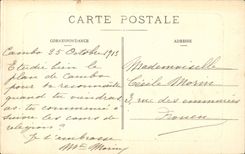 CARTE POSTALE
CORRESPONDANCE
ADRESSE
Cambo 25 Octobre 1913
Etudie bien le
plan de Cambo
pour te reconnaître
quand tu viendras
as tu commencé à
suivre les cours de
religion ?
Je t'embrasse
Mce Morin
Mademoiselle
Cécile Morin
rue des
Rouen